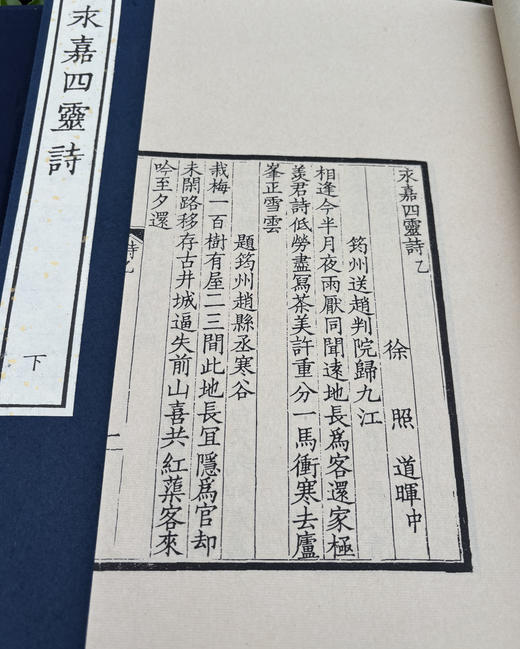 永嘉四靈詩
下
永嘉四靈詩乙
徐照道暉中
筠州送趙判院歸九江
相逢今半月夜雨厭同聞遠地長爲客還家極
羨君詩低勞盡寫茶美許重分一馬衝寒去廬
峯正雪雲
題筠州趙縣丞寒谷
栽梅一百樹有屋二三間此地長冝隱爲官却
未閑路移存古井城逼失前山喜共紅蕖客來
吟至夕還
詩乙
二